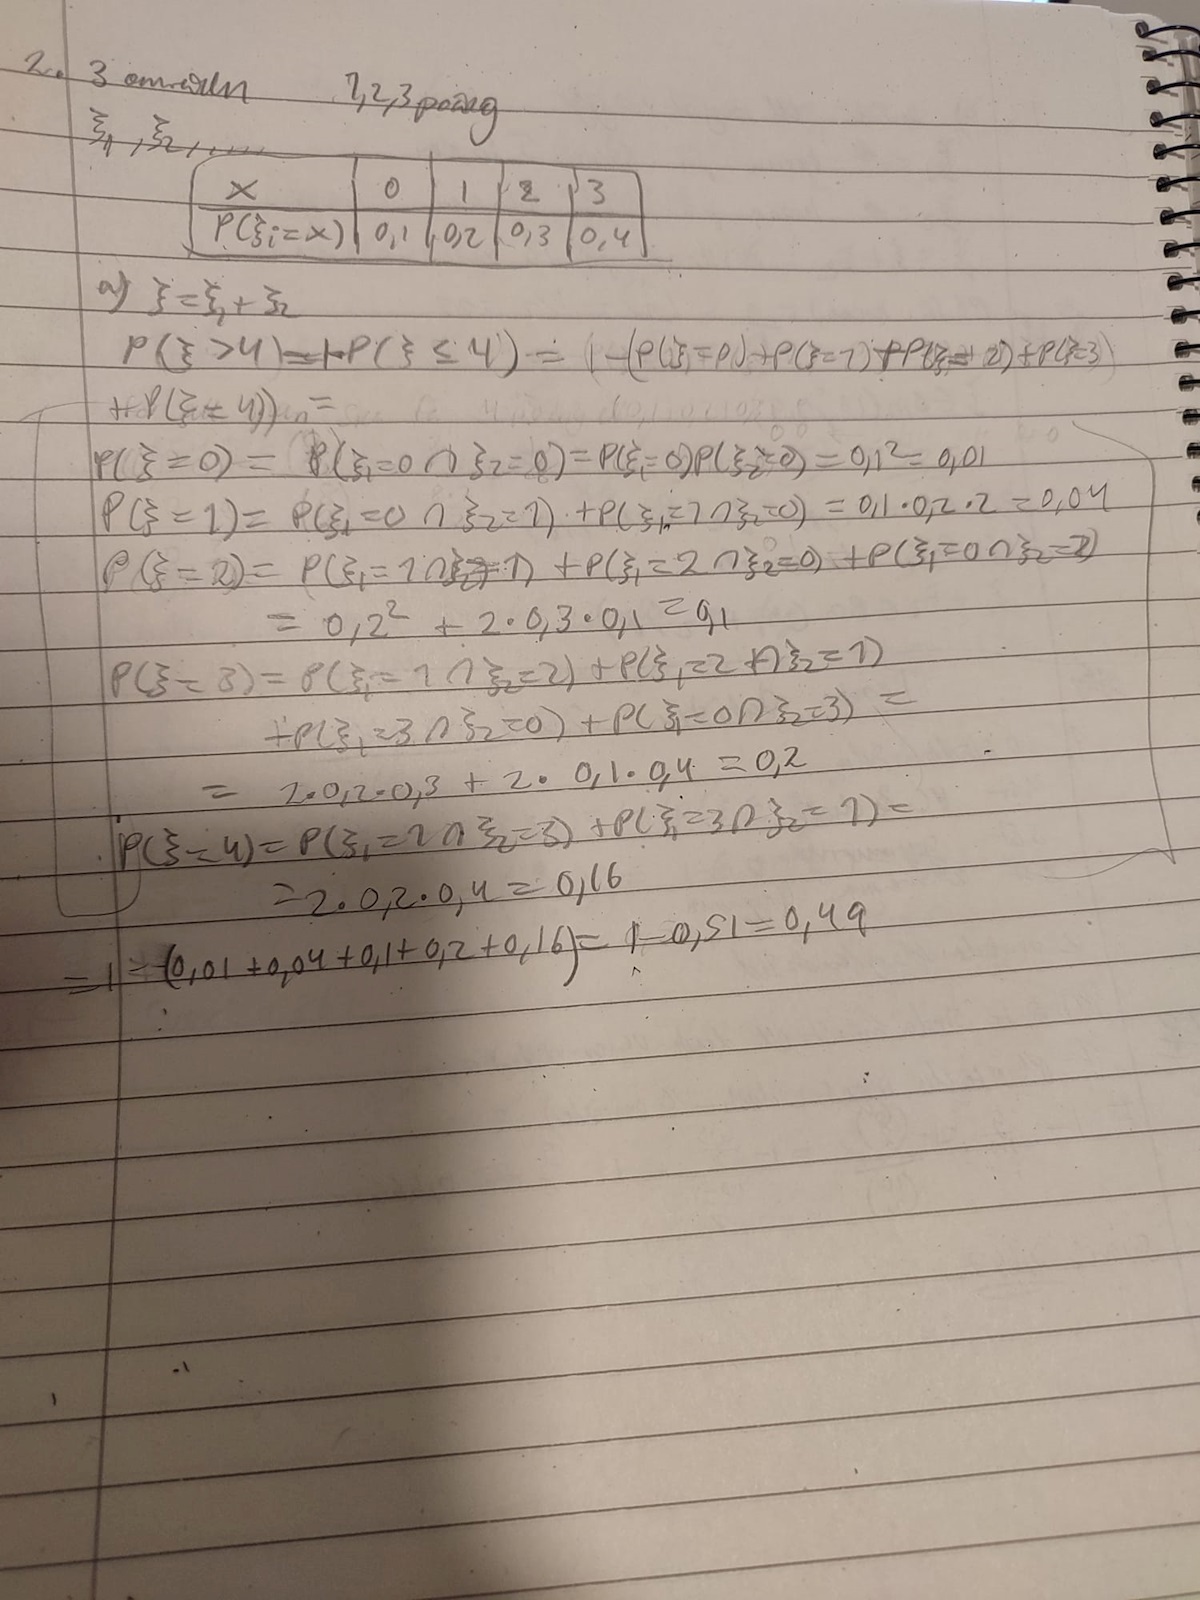 2. 3 1,2,3 poäng
ξ1, ξ2, .....
x | 0 | 1 | 2 | 3
P(ξi=x) | 0,1 | 0,2 | 0,3 | 0,4
a) ξ=ξ1+ξ2
P(ξ>4)=1-P(ξ≤4)= 1-(P(ξ=0)+P(ξ=1)+P(ξ=2)+P(ξ=3)
+P(ξ=4))=
P(ξ=0)= P(ξ1=0∩ξ2=0)=P(ξ1=0)P(ξ2=0)=0,1²=0,01
P(ξ=1)= P(ξ1=0∩ξ2=1) +P(ξ1=1∩ξ2=0)=0,1·0,2·2=0,04
P(ξ=2)= P(ξ1=1∩ξ2=1) +P(ξ1=2∩ξ2=0) +P(ξ1=0∩ξ2=2)
= 0,2² + 2·0,3·0,1=0,1
P(ξ=3)= P(ξ1=1∩ξ2=2) +P(ξ1=2∩ξ2=1)
+P(ξ1=3∩ξ2=0)+P(ξ1=0∩ξ2=3) =
= 2·0,2·0,3 + 2·0,1·0,4=0,2
P(ξ=4)= P(ξ1=1∩ξ2=3) +P(ξ1=3∩ξ2=1)=
=2·0,2·0,4=0,16
=1-(0,01+0,04+0,1+0,2+0,16)= 1-0,51=0,49